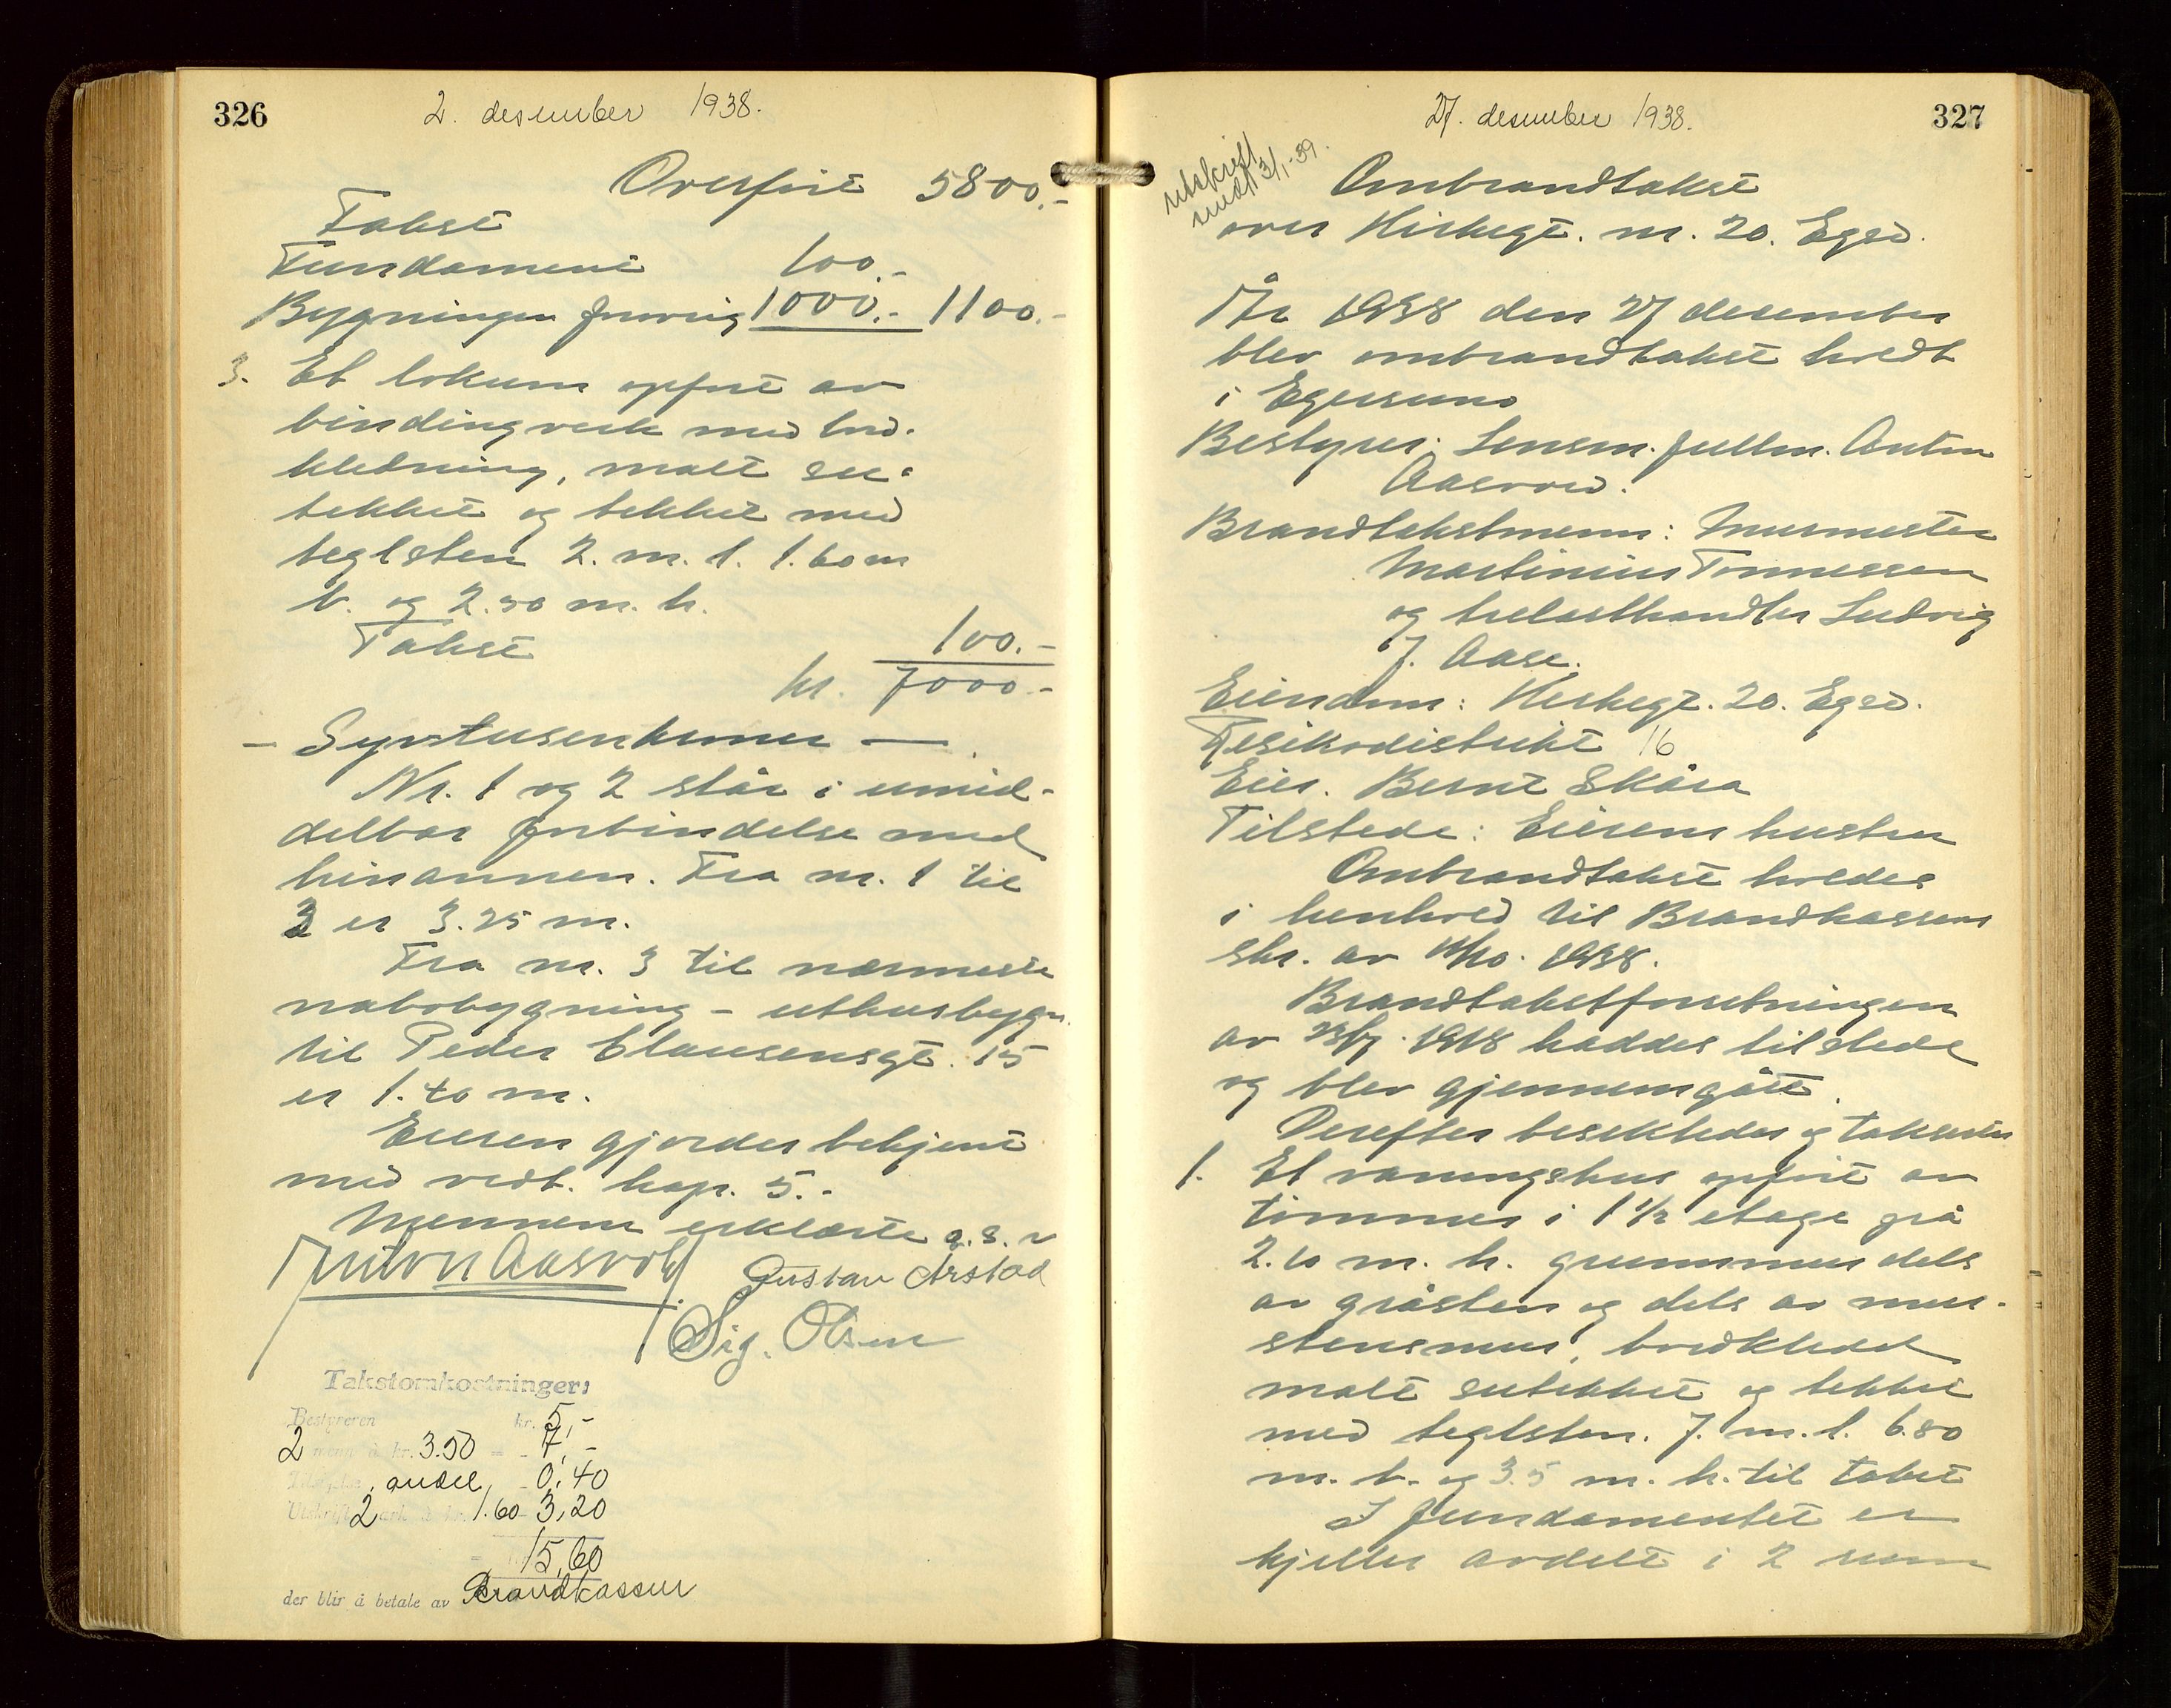 326
2. desember 1938.
Overført 5800.-
Takst
Fundament 100.-
Bygningen forøvrig 1000.- 1100.-
3. Et lokum opført av
bindingverk med bord-
kledning, malt su-
tekket og tekket med
teglsten 2. m. l. 1.60 m
b. og 2.50 m. h.
Takst 100.-
kr. 7000.-
- Syvtusenkroner -
Nr. 1 og 2 står i umid-
delbar forbindelse med
hinannen. Fra nr. 1 til
3 er 3.25 m.
Fra nr. 3 til nærmeste
nabobygning - uthusbygn.
til Peder Clausensgt. 15
er 1.40 m.
Eieren gjordes bekjent
med vedt. kap. 5.-
Mennene erklærte o. s. v
Anton Aasvold
Gustav Årstad
Sig. Olsen
Takstomkostninger:
Bestyreren kr. 5,-
2 menn à kr. 3.50 = - 7,-
andel, 0,40
Utskrift 2 ark à kr. 1.60 3,20
15,60
der blir å betale av Brandkassen
327
27. desember 1938.
utskrift
sendt 3/1-39.
Ombrandtakst
over Kirkegt. nr. 20. Egsd.
År 1938 den 27 desember
blev ombrandtakst holdt
i Egersund
Bestyrer: Lensm. fullm. Anton
Aasvold.
Brandtakstmenn: Murmester
Martinius Tønnessen
og trelasthandler Ludvig
J. Aase.
Eiendom: Kirkegt. 20. Egsd.
Risikodistrikt 16
Eier. Bernt Skåra
Tilstede: Eierens hustru
Ombrandtakst holdes
i henhold til Brandkassens
skr. av 1938.
Brandtakstforretningen
av 1918 haddes tilstede
og blev gjennemgått.
Derefter besiktedes og takseres
1. Et våningshus opført av
tømmer i 1 1/2 etage på
2.10 m. h. grunnmur dels
av gråsten og dels av mur-
stensmur, bordkledd
malt sutekket og tekket
med teglsten. 7. m. l. 6.80
m. b. og 3.5 m. h. til taket
I fundamentet er
kjeller avdelt i 2 rum